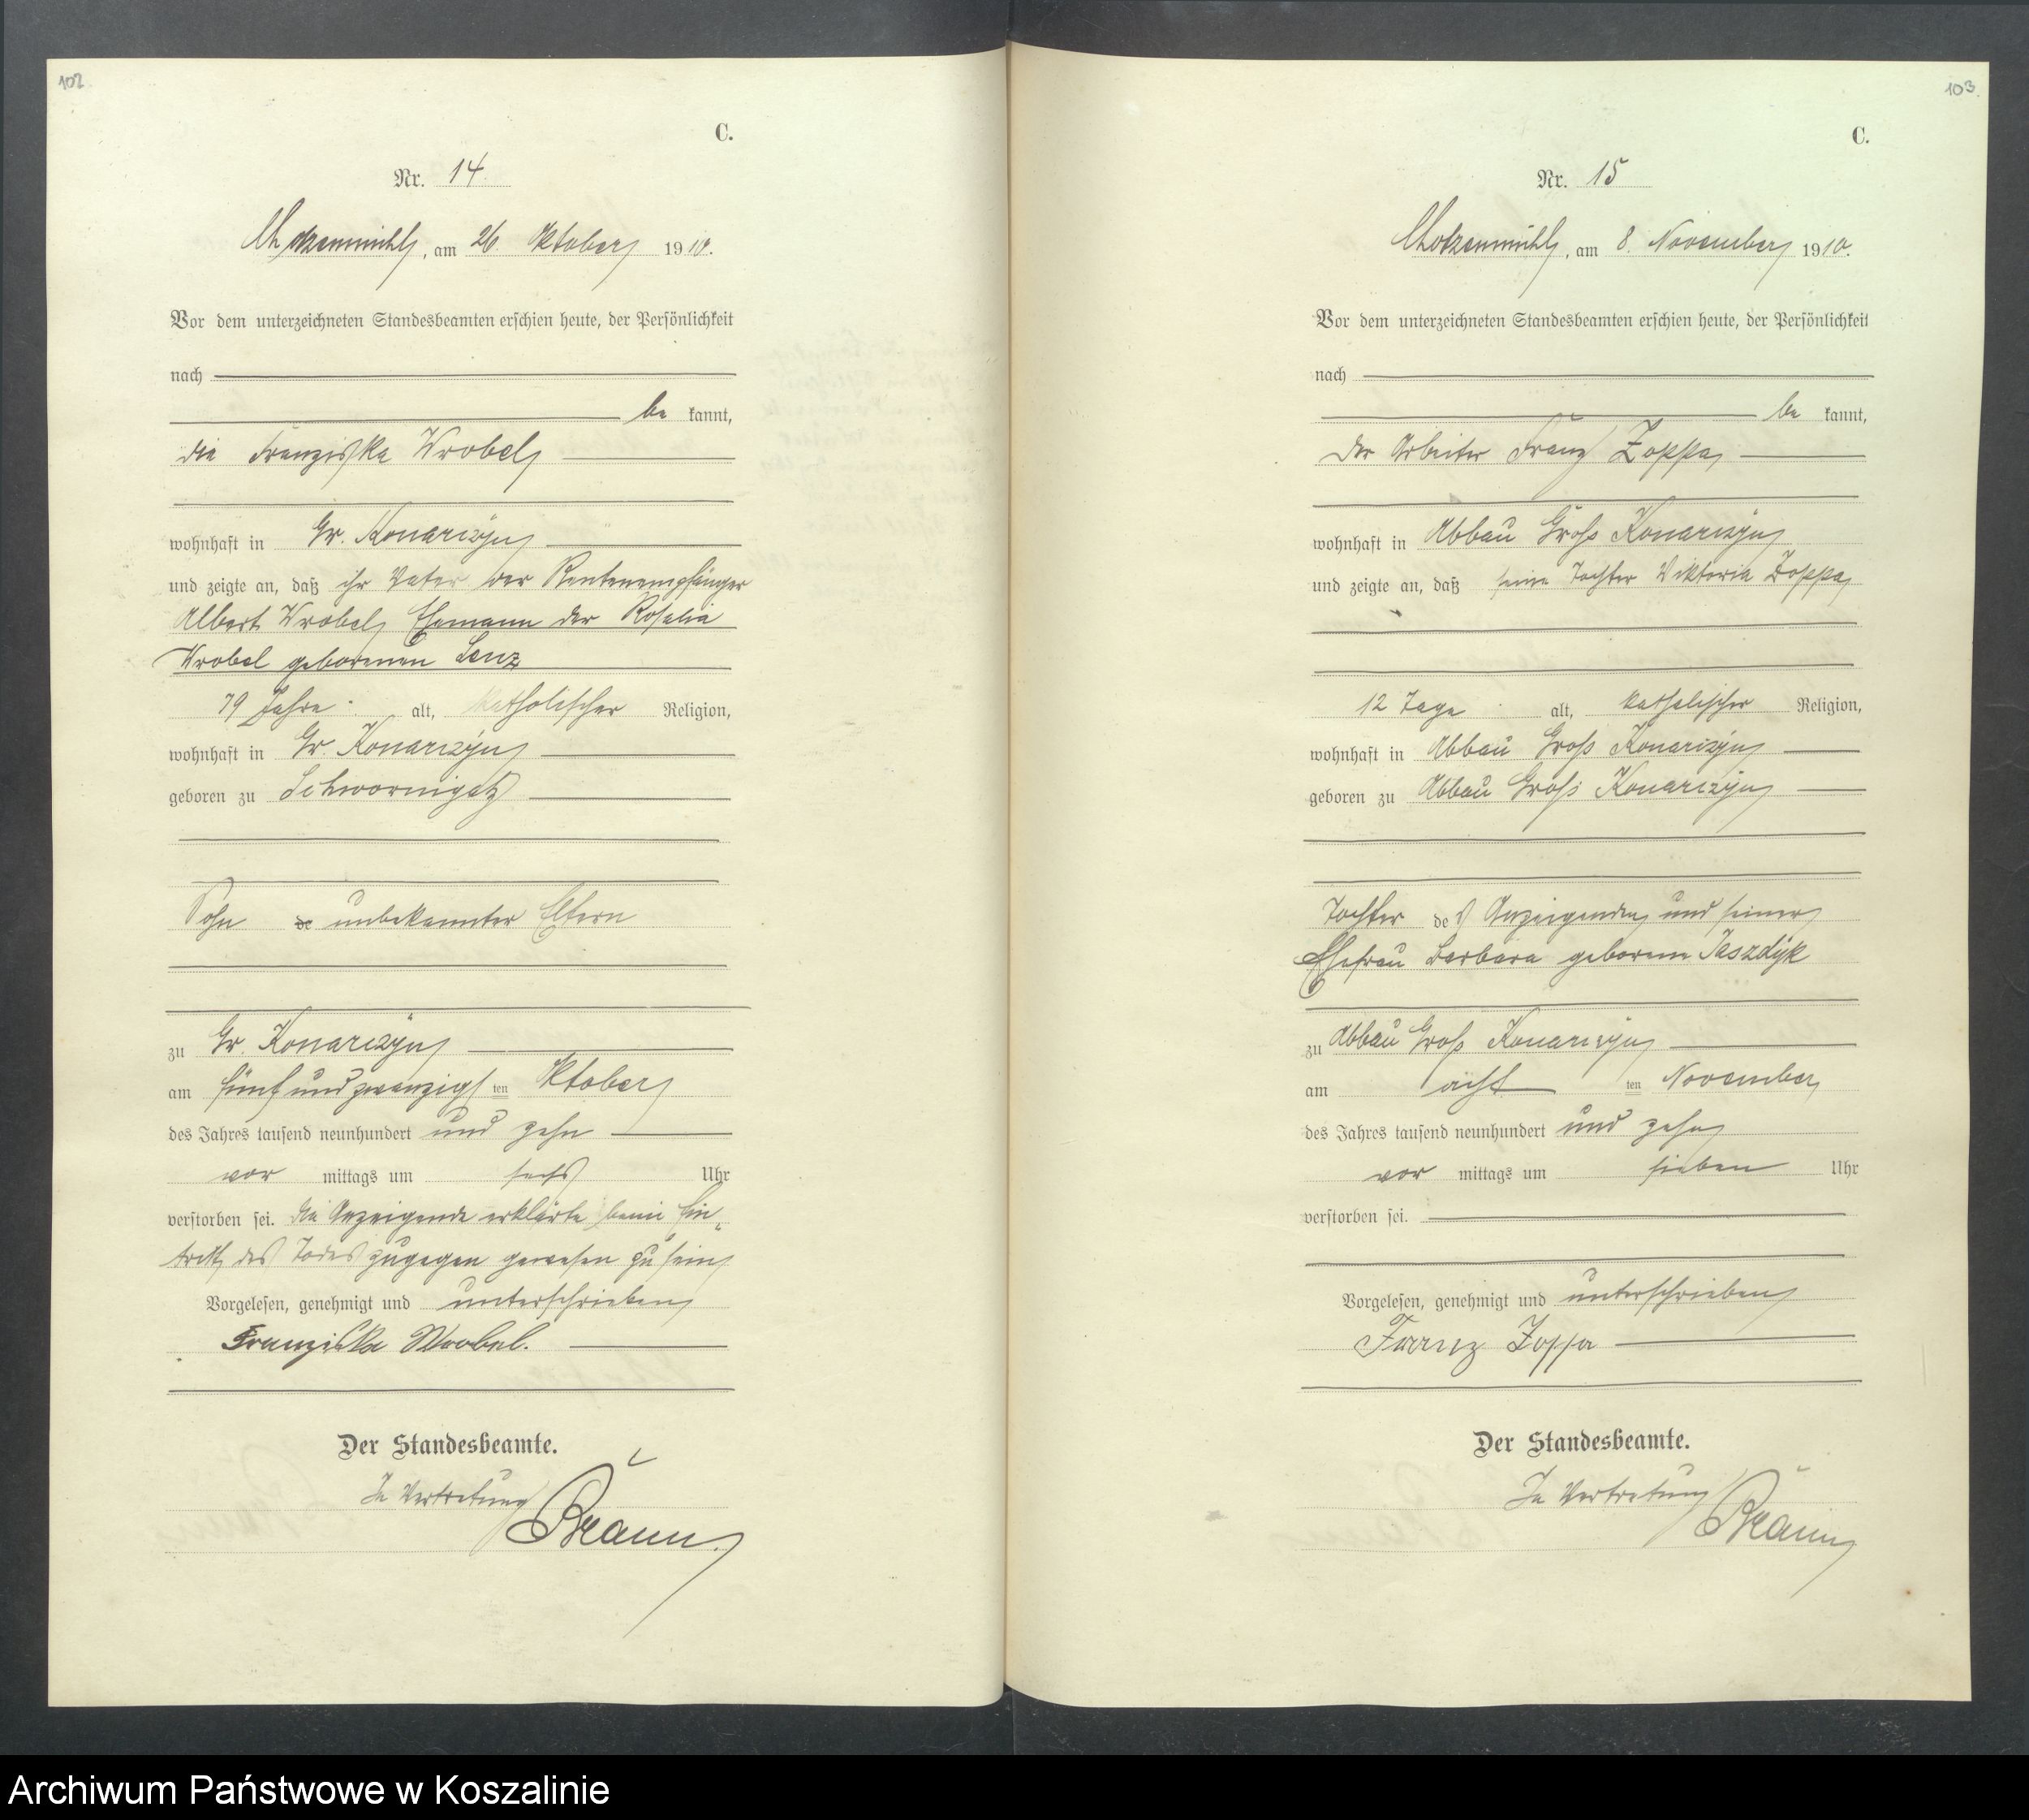 102
C.
Nr. 14
Chotzenmühl, am 26. Oktober 1910.
Vor dem unterzeichneten Standesbeamten erschien heute, der Persönlichkeit
nach
be kannt,
die Franziska Wrobel
wohnhaft in Gr. Konarczyn
und zeigte an, daß ihr Vater der Rentenempfänger
Albert Wrobel, Ehemann der Rosalia
Wrobel geborenen Lenz
79 Jahre alt, katholischer Religion,
wohnhaft in Gr. Konarczyn
geboren zu Schwornigatz
Sohn de unbekannter Eltern
zu Gr. Konarczyn
am fünfundzwanzigsten Oktober
des Jahres tausend neunhundert und zehn
vor mittags um sechs Uhr
verstorben sei. Die Anzeigende erklärte beim Ein-
tritt des Todes zugegen gewesen zu sein
Vorgelesen, genehmigt und unterschrieben
Franziska Wrobel.
Der Standesbeamte.
In Vertretung
Braun.
103.
C.
Nr. 15
Chotzenmühl, am 8. November 1910.
Vor dem unterzeichneten Standesbeamten erschien heute, der Persönlichkeit
nach
be kannt,
der Arbeiter Franz Zoppa
wohnhaft in Abbau Groß Konarczyn
und zeigte an, daß seine Tochter Viktoria Zoppa
12 Tage alt, katholischer Religion,
wohnhaft in Abbau Groß Konarczyn
geboren zu Abbau Groß Konarczyn
Tochter des Anzeigenden und seiner
Ehefrau Barbara geborene Jaszdyk
zu Abbau Groß Konarczyn
am acht ten November
des Jahres tausend neunhundert und zehn
vor mittags um sieben Uhr
verstorben sei.
Vorgelesen, genehmigt und unterschrieben
Franz Zoppa
Der Standesbeamte.
In Vertretung
Braun
Archiwum Państwowe w Koszalinie